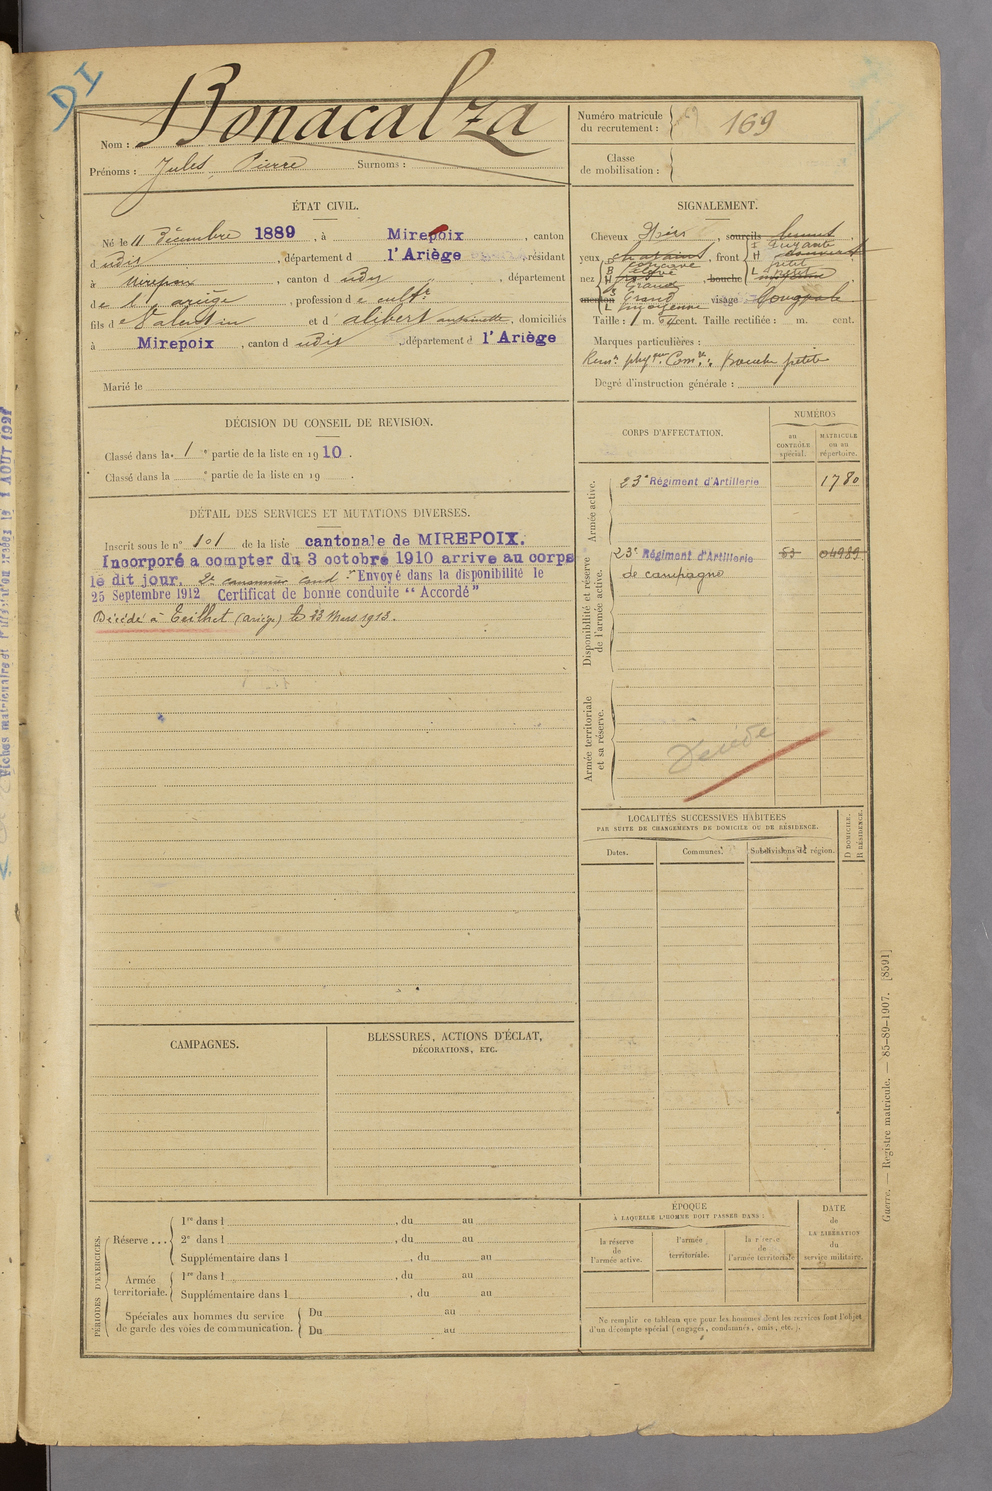 DI
Nom : Bonacalza
Prénoms : Jules, Pierre Surnoms :
Numéro matricule
du recrutement : 169
Classe
de mobilisation :
ÉTAT CIVIL.
Né le 11 Décembre 1889, à Mirepoix, canton
d udis, département d l'Ariège, résidant
à Mirepoix, canton d udis, département
de l'ariège, profession de cultr
fils de Valentin et d alibert antoinette, domiciliés
à Mirepoix, canton d udis, département d l'Ariège
Marié le
SIGNALEMENT.
Cheveux Noirs, sourcils bruns,
yeux chatains, front fuyante
nez bouche
menton visage
Taille : 1 m. cent. Taille rectifiée : m. cent.
Marques particulières :
Rensts physques Comres : Bouche petite
Degré d'instruction générale :
DÉCISION DU CONSEIL DE REVISION.
Classé dans la 1e partie de la liste en 1910.
Classé dans la e partie de la liste en 19 .
DÉTAIL DES SERVICES ET MUTATIONS DIVERSES.
Inscrit sous le n° 101 de la liste cantonale de MIREPOIX.
Incorporé a compter du 3 octobre 1910 arrive au corps
lé dit jour. 2e canonnier cond r Envoyé dans la disponibilité le
25 Septembre 1912 Certificat de bonne conduite “ Accordé ”
Décédé à Teilhet (Ariège) le 23 Mars 1913.
CORPS D'AFFECTATION.
NUMÉROS
au
CONTRÔLE
spécial.
MATRICULE
ou au
répertoire.
Armée active.
23e Régiment d'Artillerie 1780
Disponibilité et réserve
de l'armée active.
23e Régiment d'Artillerie 53 04939
de campagne
Armée territoriale
et sa réserve.
Décédé
LOCALITÉS SUCCESSIVES HABITÉES
PAR SUITE DE CHANGEMENTS DE DOMICILE OU DE RÉSIDENCE.
Dates. Communes. Subdivisions de région.
D DOMICILE.
R RÉSIDENCE.
CAMPAGNES.
BLESSURES, ACTIONS D'ÉCLAT,
DÉCORATIONS, ETC.
PÉRIODES D'EXERCICES.
Réserve ...
1re dans l , du au
2e dans l , du au
Supplémentaire dans l , du au
Armée
territoriale.
1re dans l , du au
Supplémentaire dans l , du au
Spéciales aux hommes du service
de garde des voies de communication.
Du au
Du au
ÉPOQUE
À LAQUELLE L'HOMME DOIT PASSER DANS :
la réserve
de
l'armée active.
l'armée
territoriale.
la réserve
de
l'armée territoriale
DATE
de
LA LIBÉRATION
du
service militaire.
Ne remplir ce tableau que pour les hommes dont les services font l'objet
d'un décompte spécial (engagés, condamnés, omis, etc.).
Guerre. — Registre matricule. — 85-89-1907. [8591]